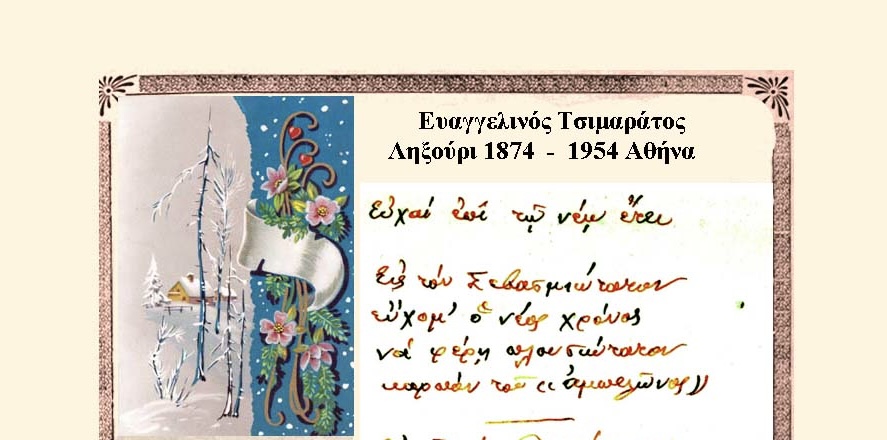 Ευαγγελινός Τσιμαράτος
Ληξούρι 1874 - 1954 Αθήνα
Εὐχαί ἐπί τῷ νέῳ ἔτει
Εἰς τόν Σεβασμιώτατον
εὔχομ' ὁ νέος χρόνος
νά φέρῃ πλουσιώτατον
καρπόν τοῦ «ἀμπελῶνος»